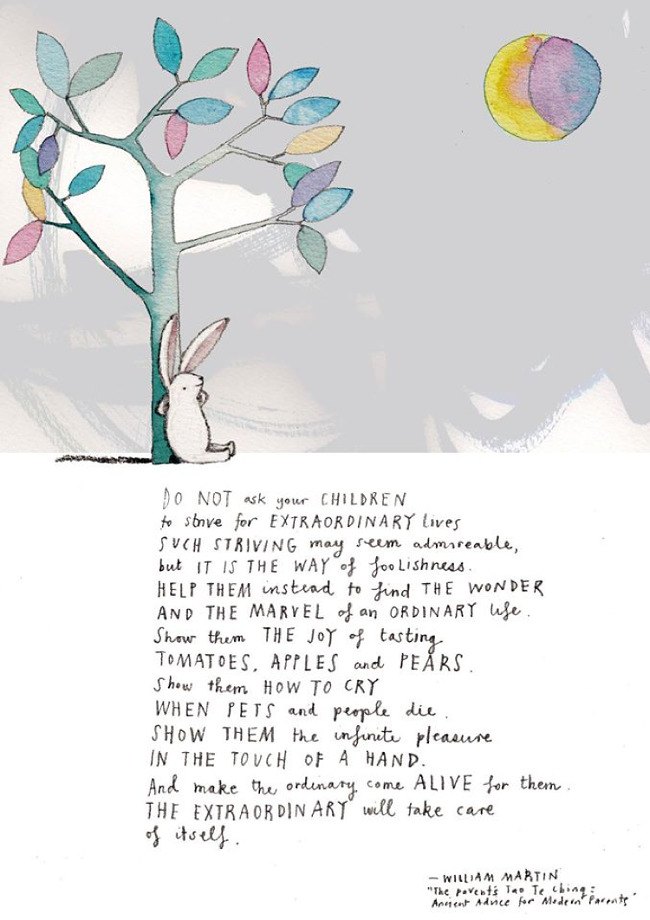 DO NOT ask your CHILDREN
to strive for EXTRAORDINARY lives
SUCH STRIVING may seem admireable,
but IT IS THE WAY of foolishness.
HELP THEM instead to find THE WONDER
AND THE MARVEL of an ORDINARY life.
Show them THE JOY of tasting
TOMATOES, APPLES and PEARS.
Show them HOW TO CRY
WHEN PETS and people die.
SHOW THEM the infinite pleasure
IN THE TOUCH OF A HAND.
And make the ordinary come ALIVE for them.
THE EXTRAORDINARY will take care
of itself.
— WILLIAM MARTIN
"The parent's Tao Te Ching:
Ancient Advice for Modern Parents"